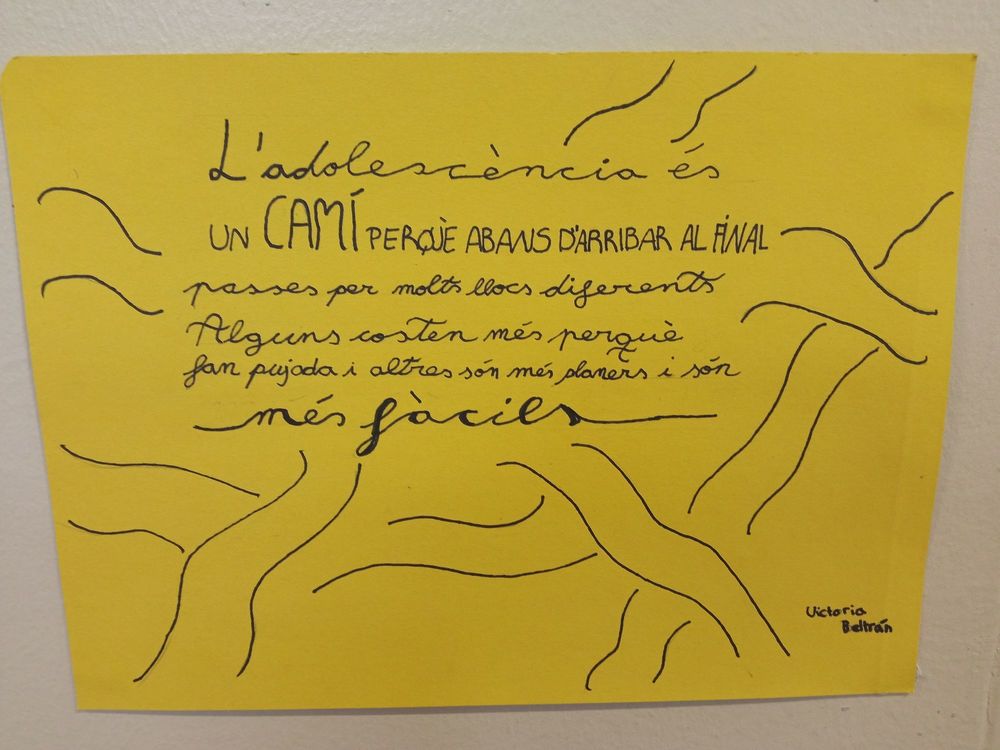 L'adolescència és
UN CAMÍ PERQUÈ ABANS D'ARRIBAR AL FINAL
passes per molts llocs diferents
Alguns costen més perquè
fan pujada i altres són més planers i són
més fàcils
Victoria
Beltrán